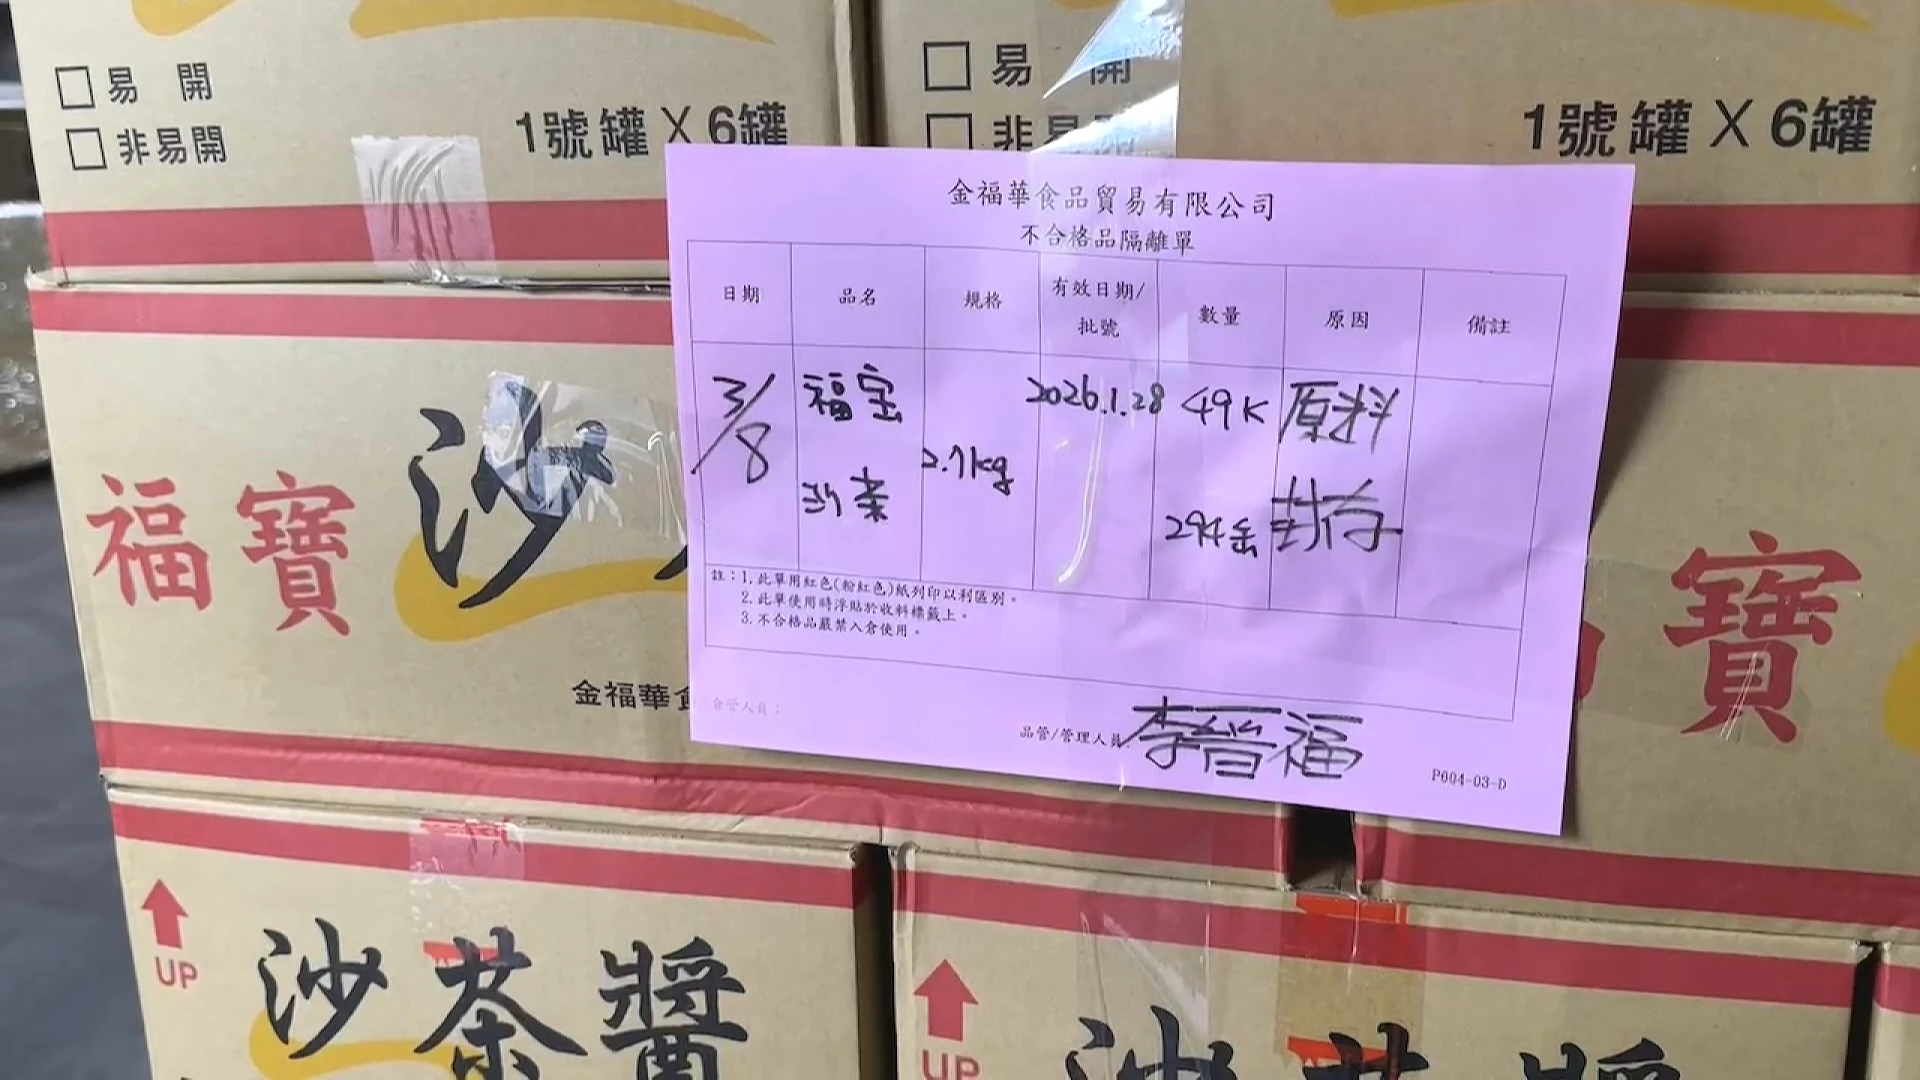 易 開
非易開
1號罐 X 6罐
易 開
非易開
1號罐 X 6罐
金福華食品貿易有限公司
不合格品隔離單
日期 品名 規格 有效日期/批號 數量 原因 備註
3/8 福宝 2026.1.28 49K 原料
沙茶 2.7kg 294缶 封存
註：1.此單用紅色(粉紅色)紙列印以利區別。
2.此單使用時浮貼於收料標籤上。
3.不合格品嚴禁入倉使用。
倉管人員：
品管/管理人員: 李晉福
P604-03-D
福寶 沙
金福華食
寶
UP
沙茶醬
UP
沙茶醬